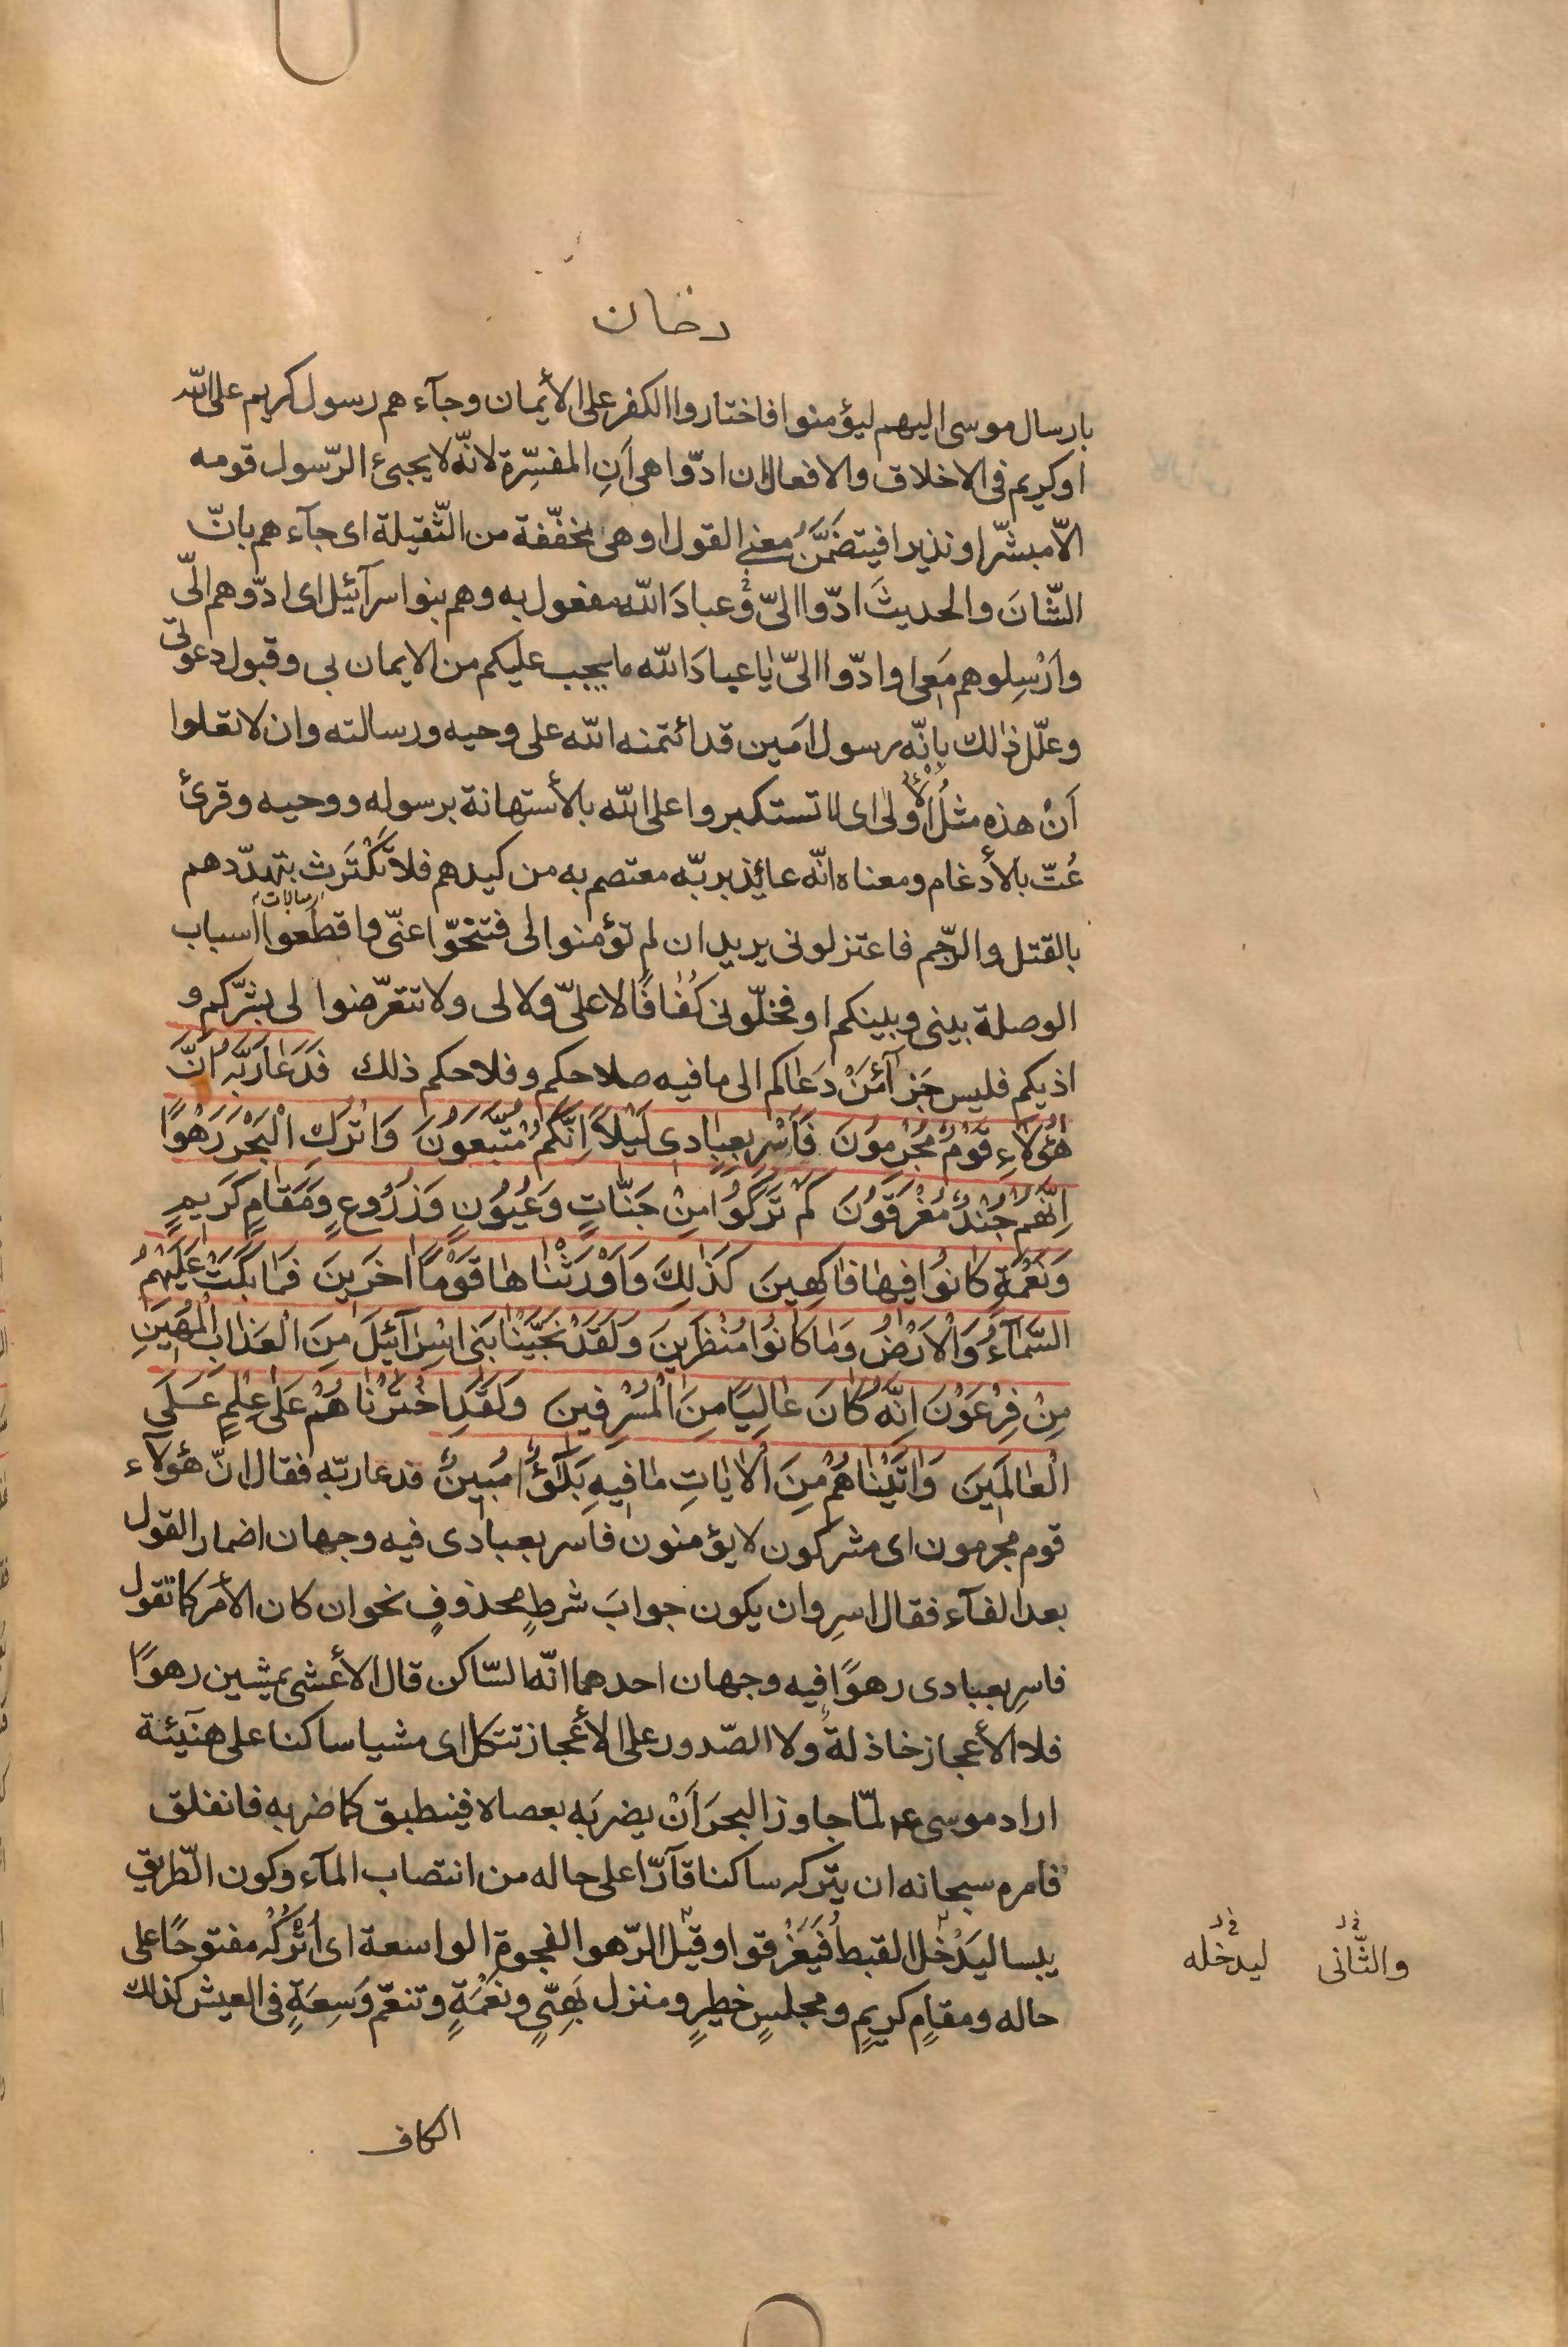 دخان
بارسال موسى اليهم ليؤمنوا فاختاروا الكفر على الأيمان وجآءهم رسول كريم على الله
او كريم فى الاخلاق والافعال ان ادّوا هى اَنِ المفسِّرة لانّه لا يجىئ الرّسول قومه
الاّ مبشّرا ونذيرا فيتضمَّنُ معنى القول او هى مخفّفة من الثّقيلة اى جآءهم بانّ
الشّانَ والحديثَ ادّوا الىّ وَعبادَ الله مفعول به وهم بنوا سرآئيل اى ادّوهم الىّ
واَرْسِلوهم مَعى او ادّوا الىّ يا عبادَ الله ما يجب عليكم من الايمان بى وقبول دعوتى
وعلّل ذالك بانّه رسول امَين قد ائتمنه الله على وحيه ورسالته وان لا تعلوا
اَنْ هذه مثلُ الأُولى اى لا تستكبروا على الله بالأستهانة برسوله ووحيه وقرئ
عُتّ بالأدغام ومعناه انّه عائِذ بربّه معتصم به من كيدهم فلا تَكْتَرِث بتهدّدهم
بالقتل والرّجم فاعتزلونى يريد ان لم تؤمنوا لى فتنحّوا عنّى واقطَعوا اسباب
الوصلة بينى وبينكم او فخلّونى كُفٰافًا لا علىّ ولا لى ولا تتعرّضوا لى بشرّكم و
اذيكم فليس جَزآءُ مَنْ دَعٰاكم الى ما فيه صلاحكم وفلاحكم ذلك فَدَعٰا رَبَّهُ اَنَّ
هٰؤُلٰاءِ قَوْمٌ مُجْرِمُونَ فَاَسْرِ بِعِبٰادى لَيْلاً اِنَّكُمْ مُتَّبَعُونَ وَاتْرُكِ الْبَحْرَ رَهْوًا
اِنَّهُمْ جُنْدٌ مُغْرَقُونَ كَمْ تَرَكُوا مِنْ جَنّٰاتٍ وَعُيُونٍ وَزُرُوعٍ وَمَقٰامٍ كَريمٍ
وَنَعْمَةٍ كٰانُوا فيهٰا فٰاكِهينَ كَذٰلِكَ وَاَوْرَثْنٰاهٰا قَوْمًا اخَرينَ فَمٰا بَكَتْ عَلَيْهِمُ
السَّمٰآءُ وَالْاَرْضُ وَمٰا كٰانُوا مُنْظَرينَ وَلَقَدْ نَجَّيْنٰا بَنى اسْرٰآئيلَ مِنَ الْعَذٰابِ الْمُهينِ
مِنْ فِرْعَوْنَ اِنَّهُ كٰانَ عٰالِيًا مِنَ الْمُسْرِفينَ وَلَقَدِ اخْتَرْنٰاهُمْ عَلٰى عِلْمٍ عَلَى
الْعٰالَمينَ وَاتَيْنٰاهُمْ مِنَ الْاٰيٰاتِ مٰا فيهِ بَلٰٓؤٌا مُبينٌ فدعا ربّه فقال انّ هؤلآء
قوم مجرمون اى مشركون لا يؤمنون فاسر بعبادى فيه وجهان اضمار القول
بعد الفآء فقال اسرِ وان يكون جوابَ شرطٍ محذوفٍ نحو ان كان الأمر كما تقول
فاسرِ بعبادى رهوًا فيه وجهان احدهما انّه السّاكن قال الأعشى يمشين رهوًا
فلا الأعجاز خاذلةٌ ولا الصّدور على الأعجاز تتكل اى مشيا ساكنا على هنيئة
اراد موسى ع لمّا جاوز البحرَ اَنْ يضربَه بعصاه فينطبق كما ضربه فانفلق
فامره سبحانه ان يتركه ساكنا قآرّا على حاله من انتصاب المآء وكون الطّريق
يبسا ليَدْخل القبطُ فَيَغْرَقوا وقيل الرّهو الفجوة الواسعة اى اُتْرُكْهُ مفتوحًا على
والثّانى ليدخله
حاله ومقامٍ كريمٍ ومجلسٍ خطيرٍ ومنزل بَهِىٍّ ونَعْمَةٍ وتنعّمٍ وَسِعَةٍ فى العيش كذلك
الكاف